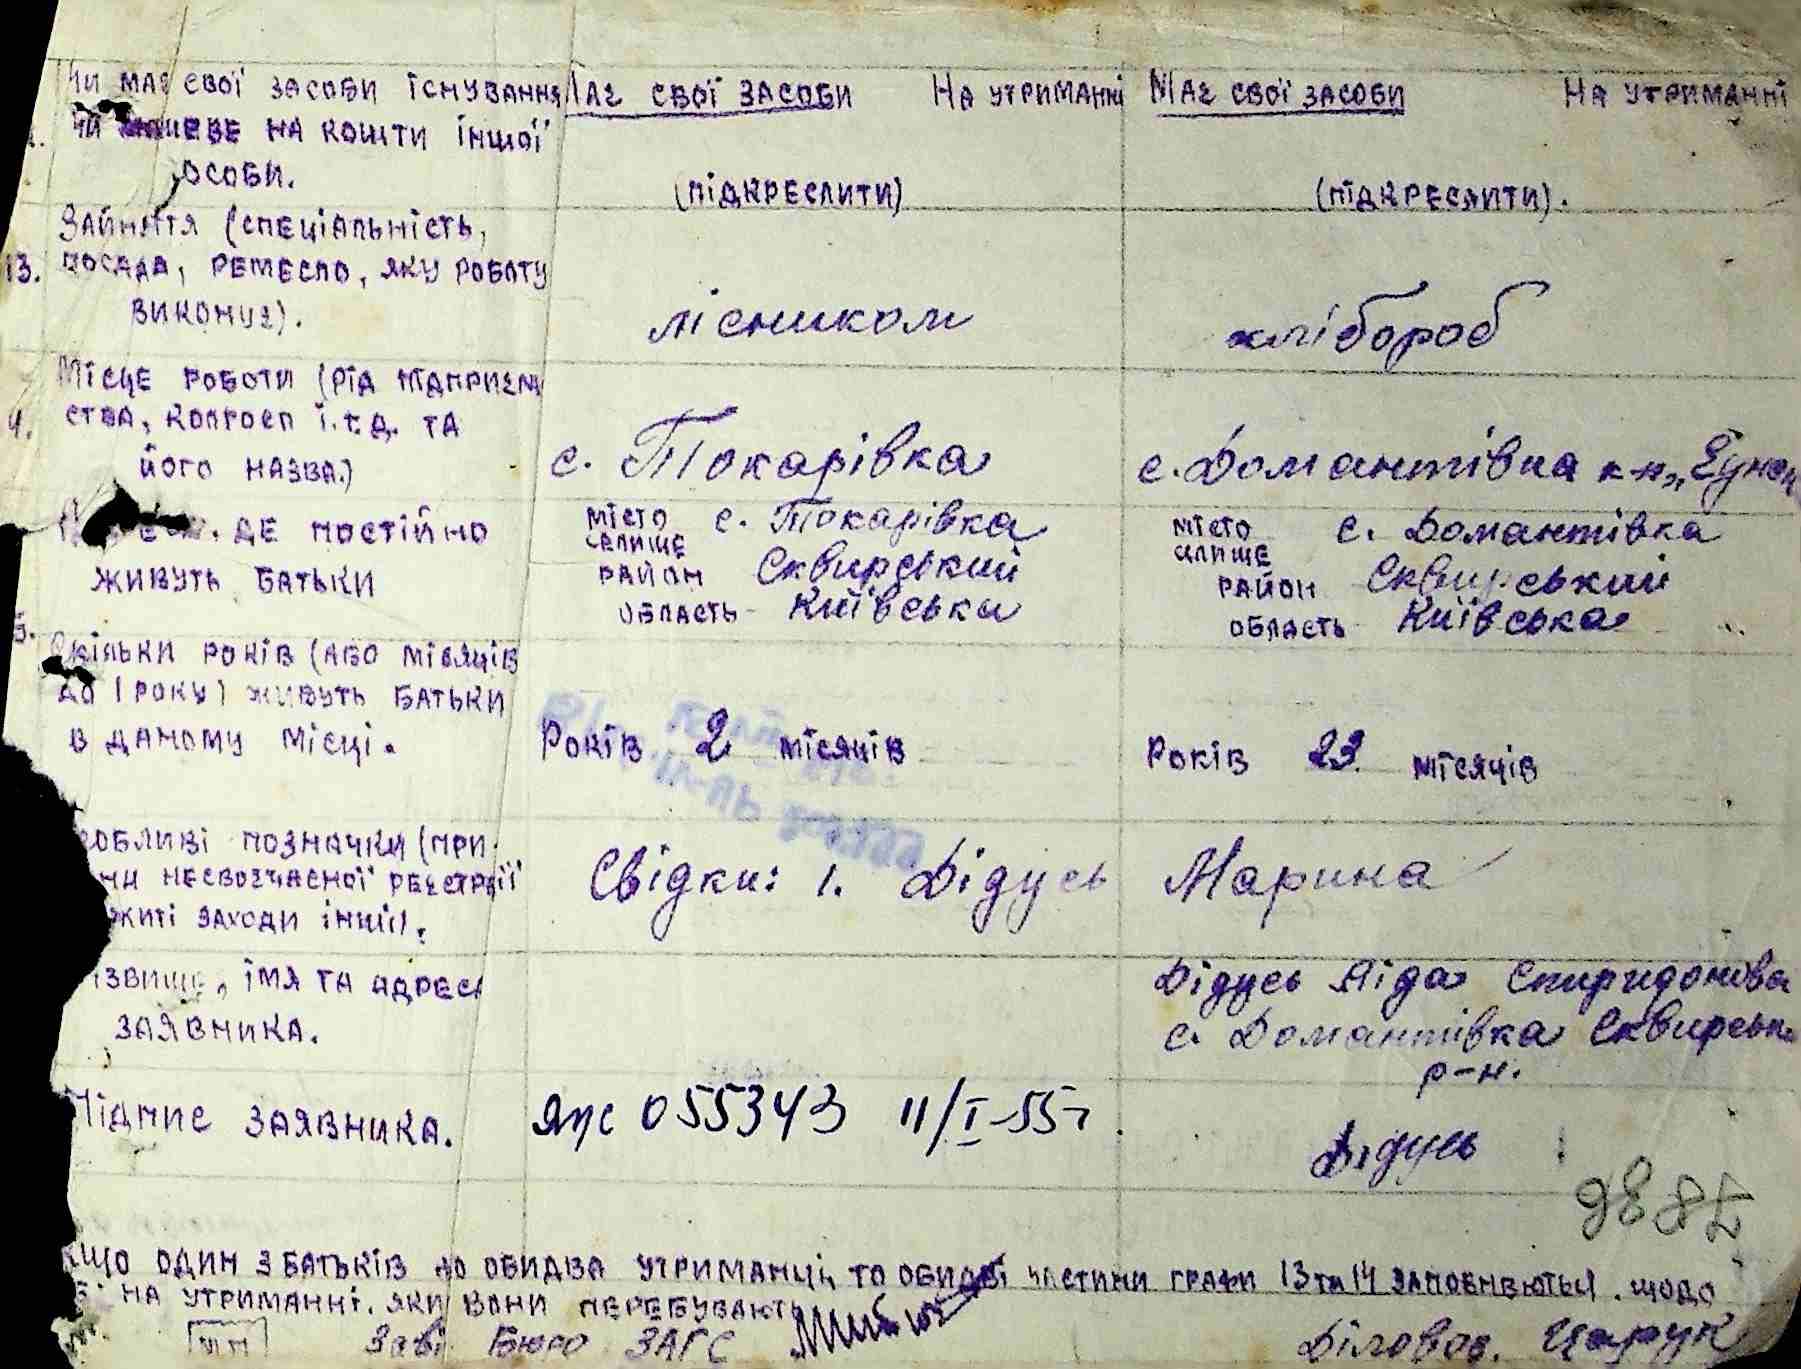 Чи має свої засоби існування Має свої засоби На утриманні Має свої засоби На утриманні
чи живе на кошти іншої
особи.
(підкреслити) (підкреслити).
Заняття (спеціальність,
13. посада, ремесло, яку роботу
виконує).
лісником хлібороб
Місце роботи (рід підприєм
4. ства, колгосп і.т.д. та
його назва.)
с. Токарівка с. Домантівка к-п
де постійно
живуть батьки
місто с. Токарівка місто с. Домантівка
селище селище
район Сквирський район Сквирський
область Київська область Київська
5. Скільки років (або місяців
до 1 року) живуть батьки
в даному місці.
Років 2 місяців Років 23 місяців
собливі позначки (при
чи несвоєчасної реєстрації
житі заходи інші).
Свідки: 1. Дідусь Марина
ізвище, імя та адреса
заявника.
Дідусь Аїда Спиридонівна
с. Домантівка Сквирськ
р-н.
Підпис заявника. 055343 11/I-55г. Дідусь
9886
кщо один з батьків або обидва утриманці, то обидві частини графи 13 та 14 заповнюються щодо
на утриманні яки вони перебувають
мп Зав. Бюро ЗАГС Діловод. Царук